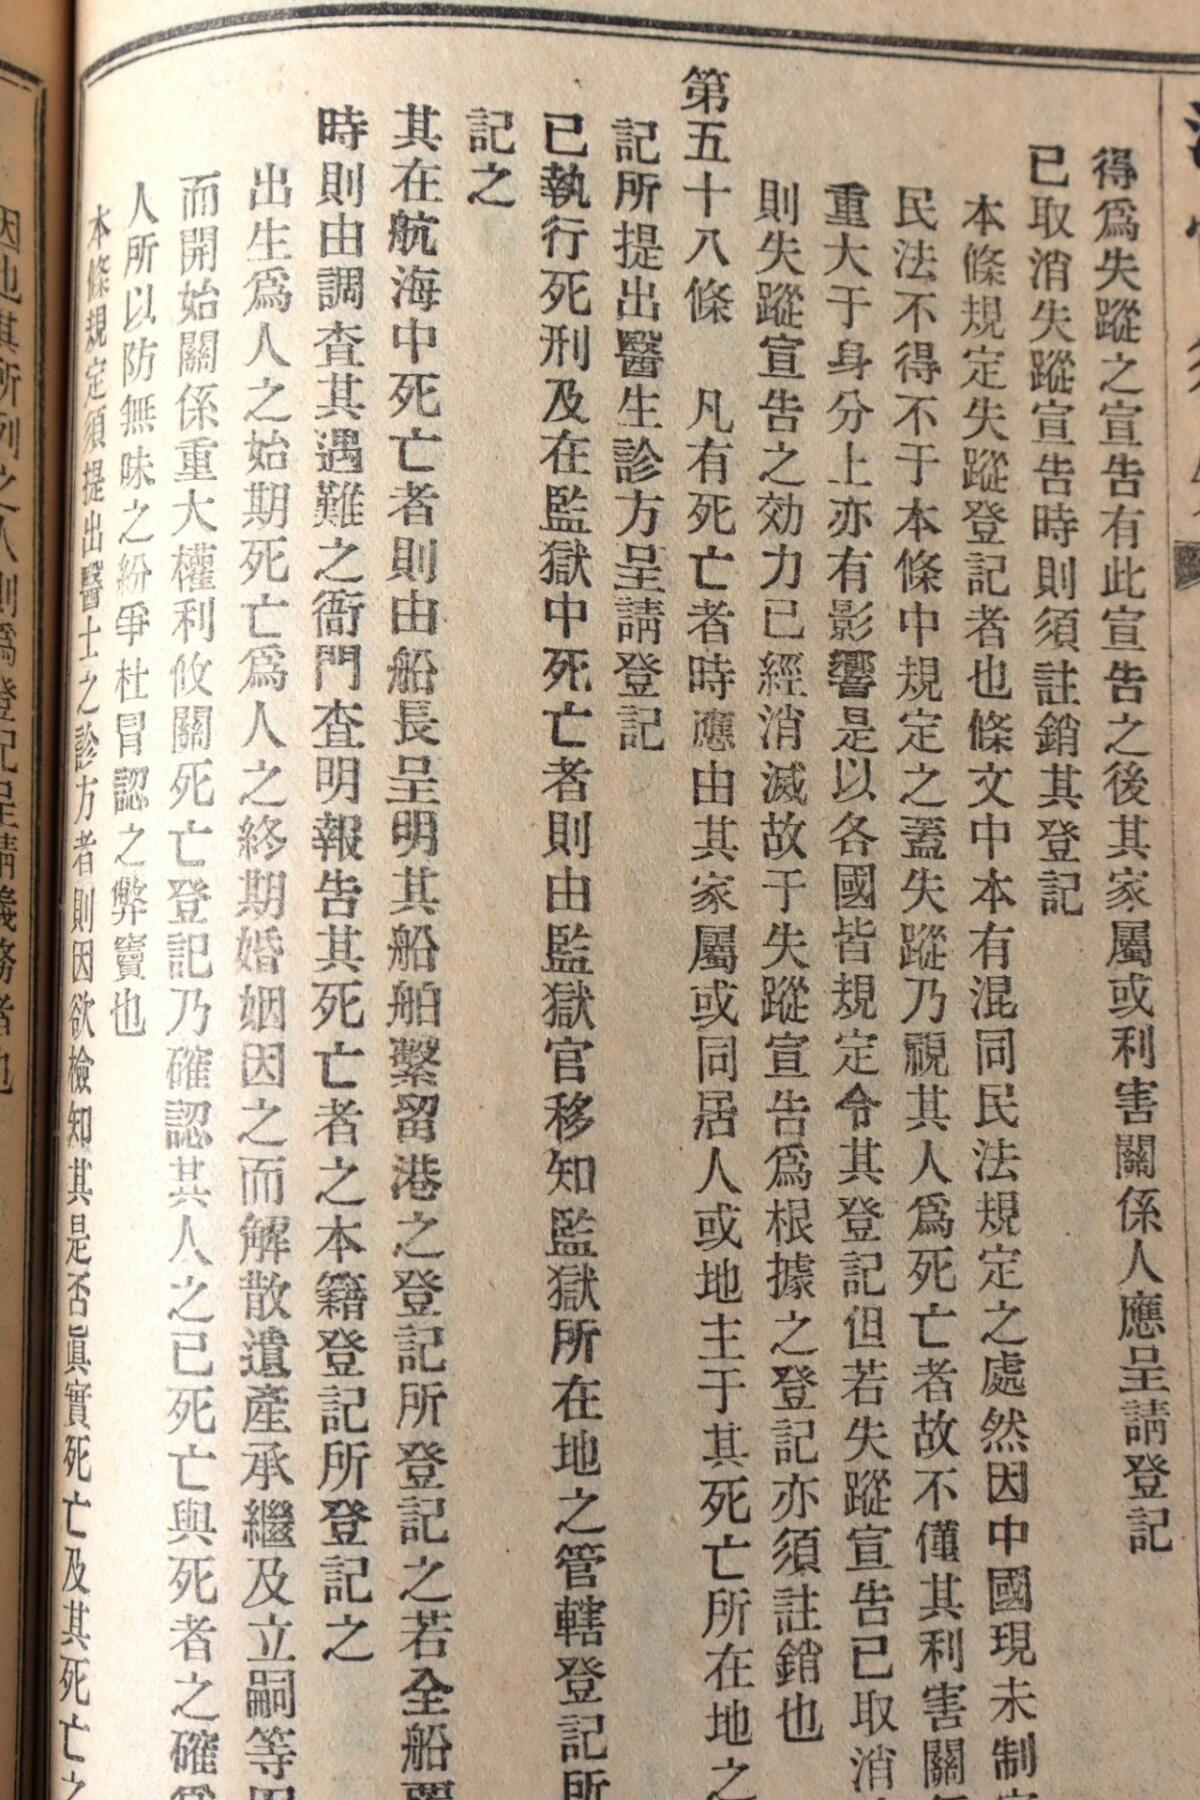 得爲失蹤之宣告有此宣告之後其家屬或利害關係人應呈請登記
已取消失蹤宣告時則須註銷其登記
本條規定失蹤登記者也條文中本有混同民法規定之處然因中國現未制
民法不得不于本條中規定之蓋失蹤乃視其人爲死亡者故不僅其利害關
重大于身分上亦有影響是以各國皆規定令其登記但若失蹤宣告已取消
則失蹤宣告之効力已經消滅故于失蹤宣告爲根據之登記亦須註銷也
第五十八條 凡有死亡者時應由其家屬或同居人或地主于其死亡所在地之
記所提出醫生診方呈請登記
已執行死刑及在監獄中死亡者則由監獄官移知監獄所在地之管轄登記所
記之
其在航海中死亡者則由船長呈明其船舶繫留港之登記所登記之若全船
時則由調查其遇難之衙門查明報告其死亡者之本籍登記所登記之
出生爲人之始期死亡爲人之終期婚姻因之而解散遺產承繼及立嗣等
而開始關係重大權利攸關死亡登記乃確認其人之已死亡與死者之確
人所以防無味之紛爭杜冒認之弊竇也
本條規定須提出醫士之診方者則因欲檢知其是否眞實死亡及其死亡之
因也其所列之人則爲登記呈請義務者也